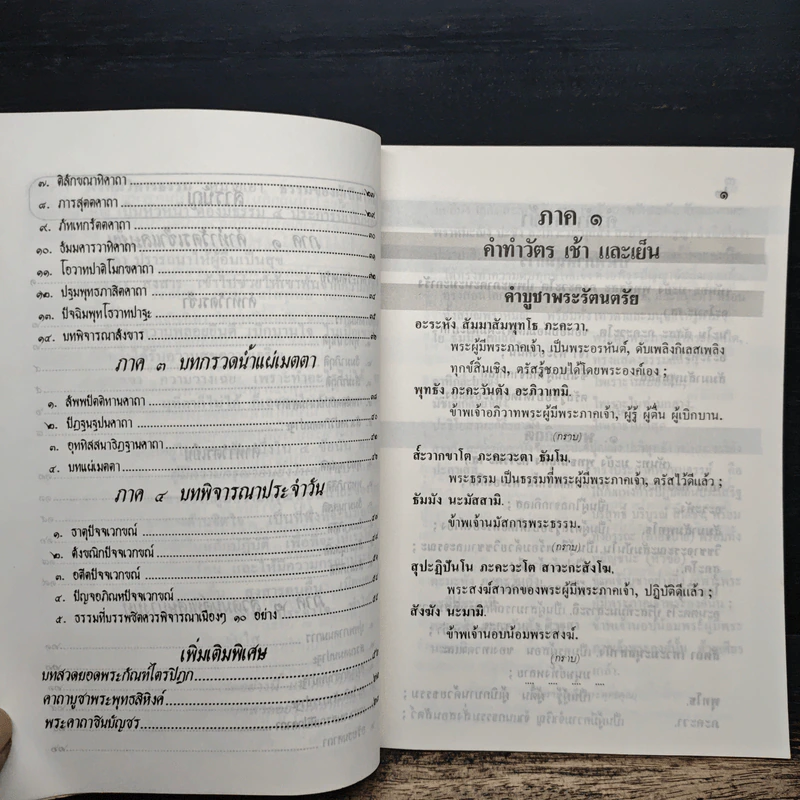 ๗. ติลักขณาทิคาถา
๘. ภารสุตตคาถา
๙. ภัทเทกรัตตคาถา
๑๐. ธัมมคารวาทิคาถา
๑๑. โอวาทปาติโมกขคาถา
๑๒. ปฐมพุทธภาสิตคาถา
๑๓. ปัจฉิมพุทโธวาทปาฐะ
๑๔. บทพิจารณาสังขาร
ภาค ๓ บทกรวดน้ำแผ่เมตตา
๑. สัพพปัตติทานคาถา
๒. ปัฏฐนฐปนคาถา
๓. อุททิสสนาธิฏฐานคาถา
๔. บทแผ่เมตตา
ภาค ๔ บทพิจารณาประจำวัน
๑. ธาตุปัจจเวกขณ์
๒. ตังขณิกปัจจเวกขณ์
๓. อตีตปัจจเวกขณ์
๔. ปัญจอภิณหปัจจเวกขณ์
๕. ธรรมที่บรรพชิตควรพิจารณาเนืองๆ ๑๐ อย่าง
เพิ่มเติมพิเศษ
บทสวดยอดพระกัณฑ์ไตรปิฎก
คาถาบูชาพระพุทธสิหิงค์
พระคาถาชินบัญชร
๑
ภาค ๑
คำทำวัตร เช้า และเย็น
คำบูชาพระรัตนตรัย
อะระหัง สัมมาสัมพุทโธ ภะคะวา.
พระผู้มีพระภาคเจ้า, เป็นพระอรหันต์, ดับเพลิงกิเลสเพลิง
ทุกข์สิ้นเชิง, ตรัสรู้ชอบได้โดยพระองค์เอง ;
พุทธัง ภะคะวันตัง อะภิวาเทมิ.
ข้าพเจ้าอภิวาทพระผู้มีพระภาคเจ้า, ผู้รู้ ผู้ตื่น ผู้เบิกบาน.
(กราบ)
ส๎วากขาโต ภะคะวะตา ธัมโม.
พระธรรม เป็นธรรมที่พระผู้มีพระภาคเจ้า, ตรัสไว้ดีแล้ว ;
ธัมมัง นะมัสสามิ.
ข้าพเจ้านมัสการพระธรรม.
(กราบ)
สุปะฏิปันโน ภะคะวะโต สาวะกะสังโฆ.
พระสงฆ์สาวกของพระผู้มีพระภาคเจ้า, ปฏิบัติดีแล้ว ;
สังฆัง นะมามิ.
ข้าพเจ้านอบน้อมพระสงฆ์.
(กราบ)